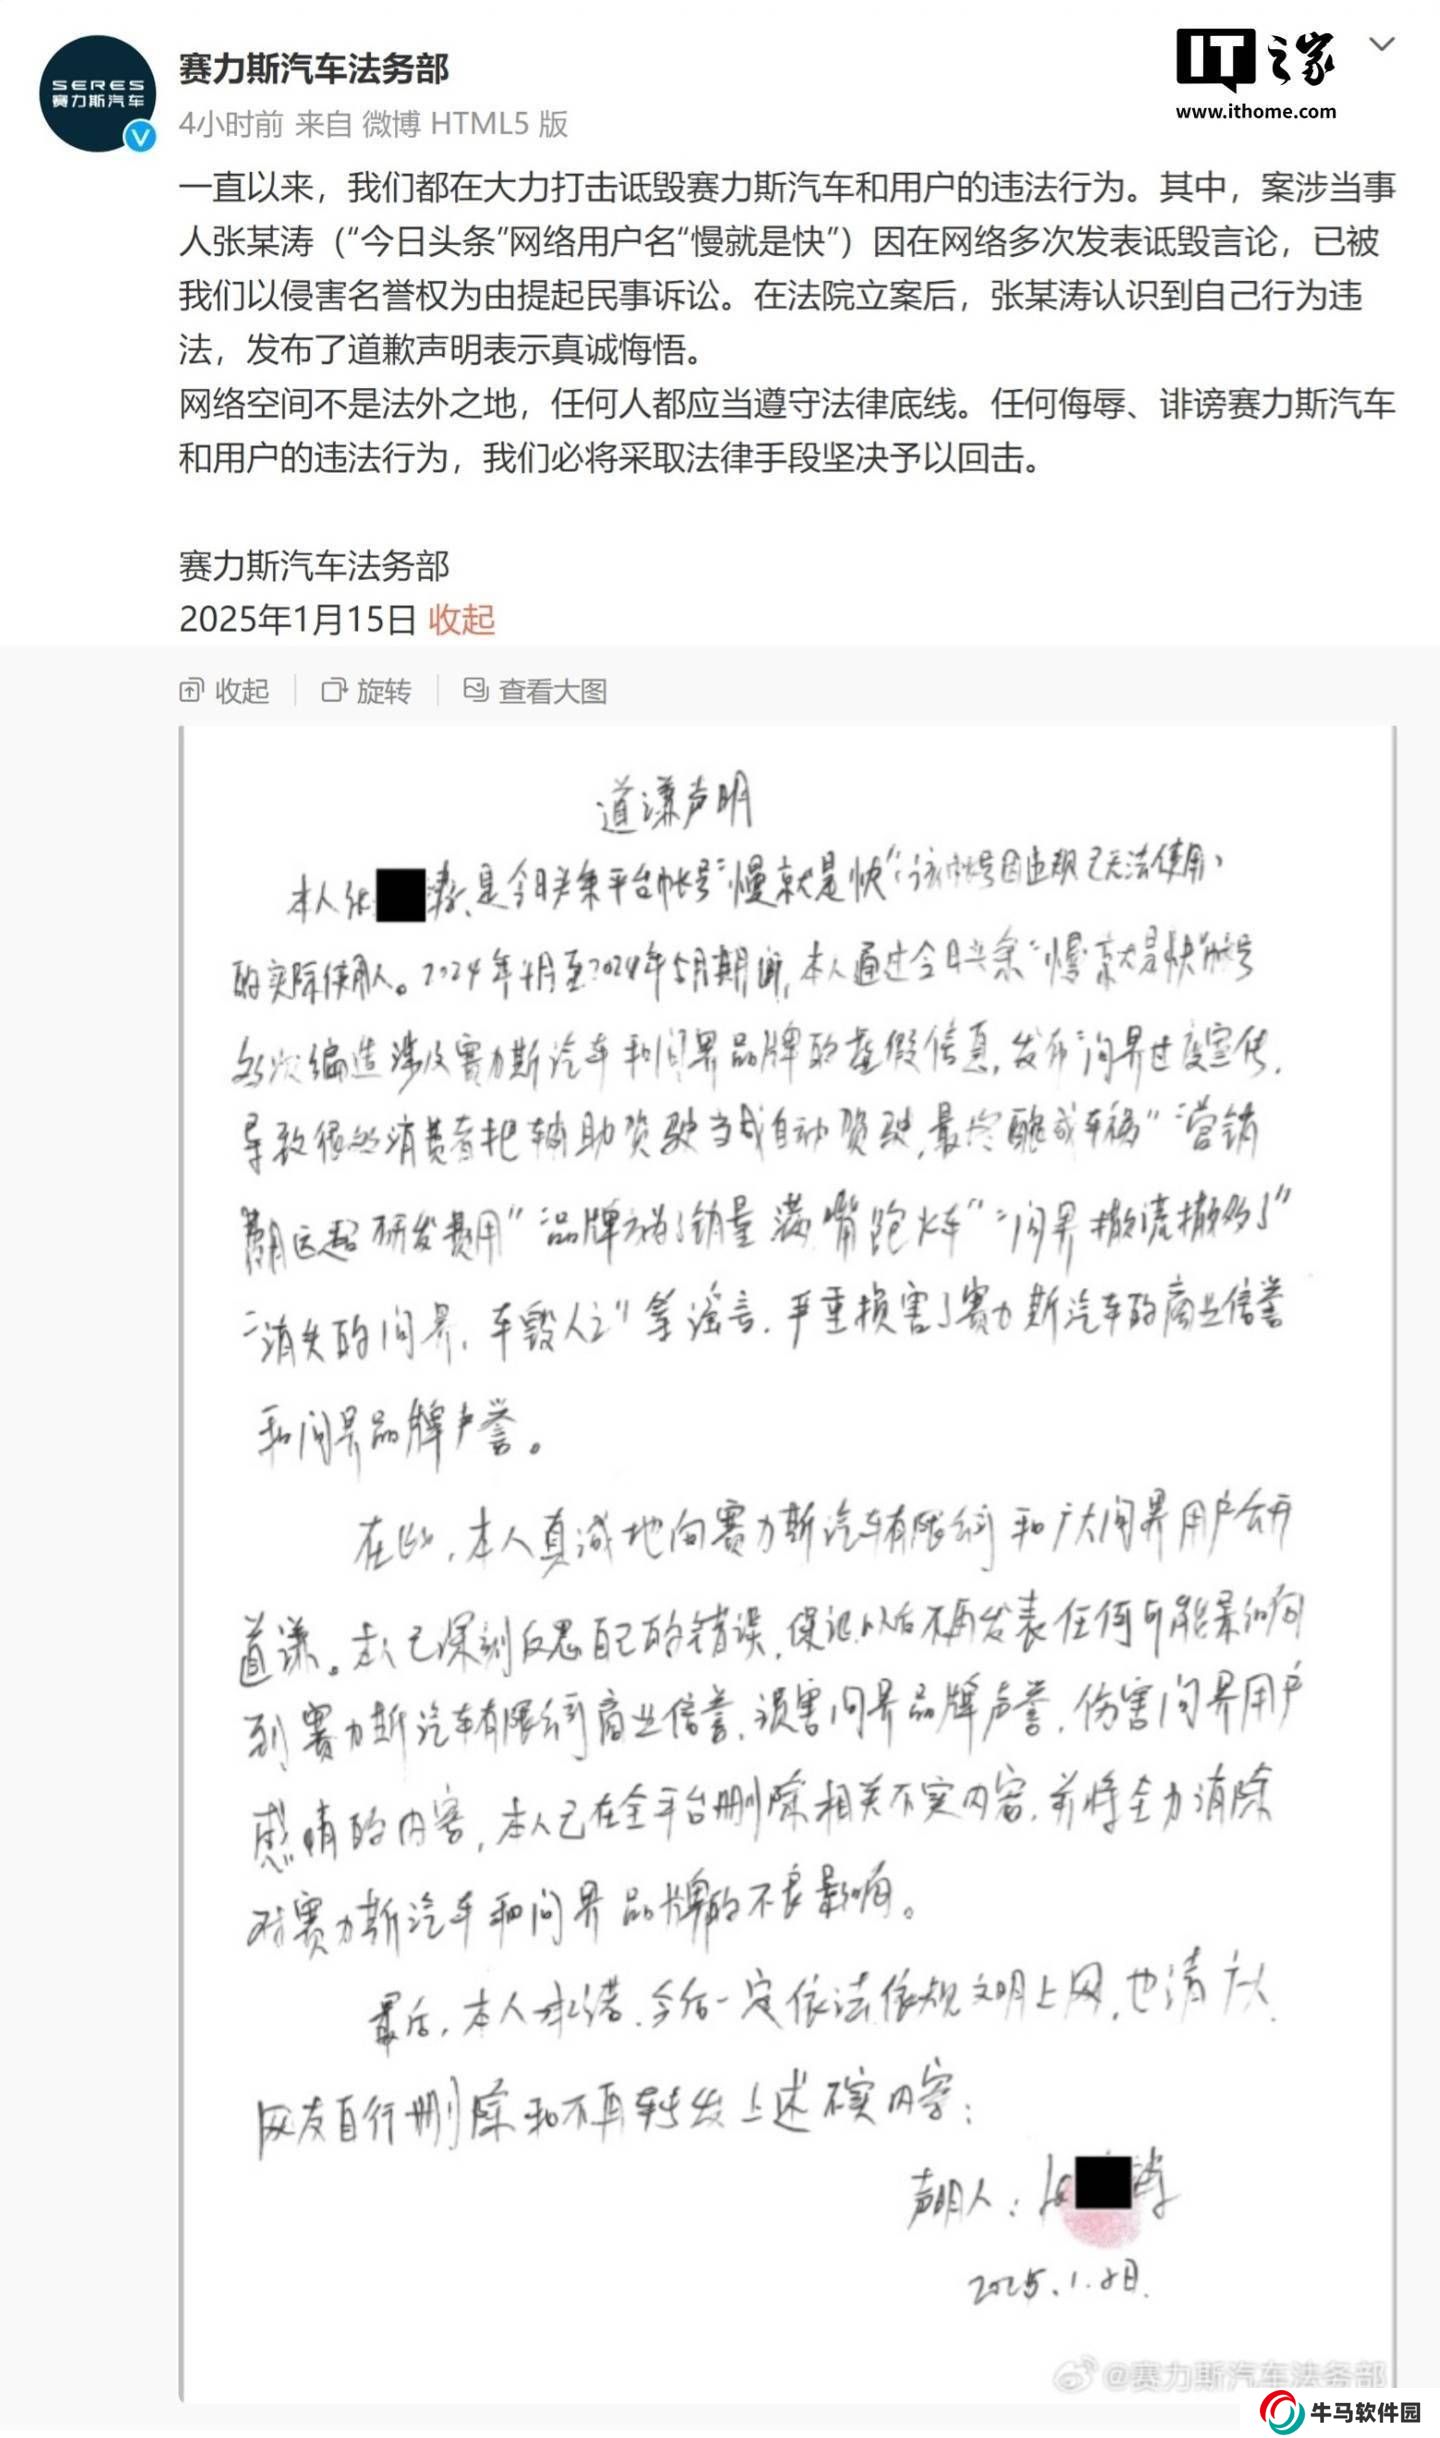 SERES
赛力斯汽车
赛力斯汽车法务部
4小时前 来自 微博 HTML5 版
IT之家
www.ithome.com
一直以来，我们都在大力打击诋毁赛力斯汽车和用户的违法行为。其中，案涉当事
人张某涛（“今日头条”网络用户名“慢就是快”）因在网络多次发表诋毁言论，已被
我们以侵害名誉权为由提起民事诉讼。在法院立案后，张某涛认识到自己行为违
法，发布了道歉声明表示真诚悔悟。
网络空间不是法外之地，任何人都应当遵守法律底线。任何侮辱、诽谤赛力斯汽车
和用户的违法行为，我们必将采取法律手段坚决予以回击。
赛力斯汽车法务部
2025年1月15日 收起
收起 旋转 查看大图
道谦声明
本人张 涛，是今日头条平台帐号“慢就是快”（该帐号因违规已无法使用）
的实际使用人。2024年4月至2024年5月期间，本人通过今日头条“慢就是快”帐号
多次编造涉及赛力斯汽车和问界品牌的虚假信息，发布“问界过度宣传，
导致很多消费者把辅助驾驶当成自动驾驶，最终酿成车祸”“营销
费用远超研发费用”“品牌方为了销量满嘴跑火车”“问界撒谎撒多了”
“消失的问界，车毁人亡”等谣言，严重损害了赛力斯汽车的商业信誉
和问界品牌声誉。
在此，本人真诚地向赛力斯汽车有限公司和广大问界用户公开
道谦。本人已深刻反思自己的错误，保证以后不再发表任何可能影响
到赛力斯汽车有限公司商业信誉，损害问界品牌声誉，伤害问界用户
感情的内容，本人已在全平台删除相关不实内容，并将全力消除
对赛力斯汽车和问界品牌的不良影响。
最后，本人承诺，今后一定依法依规文明上网，也请广大
网友自行删除和不再转发上述不实内容；
声明人：张 涛
2025.1.8日.
@赛力斯汽车法务部
牛马软件园